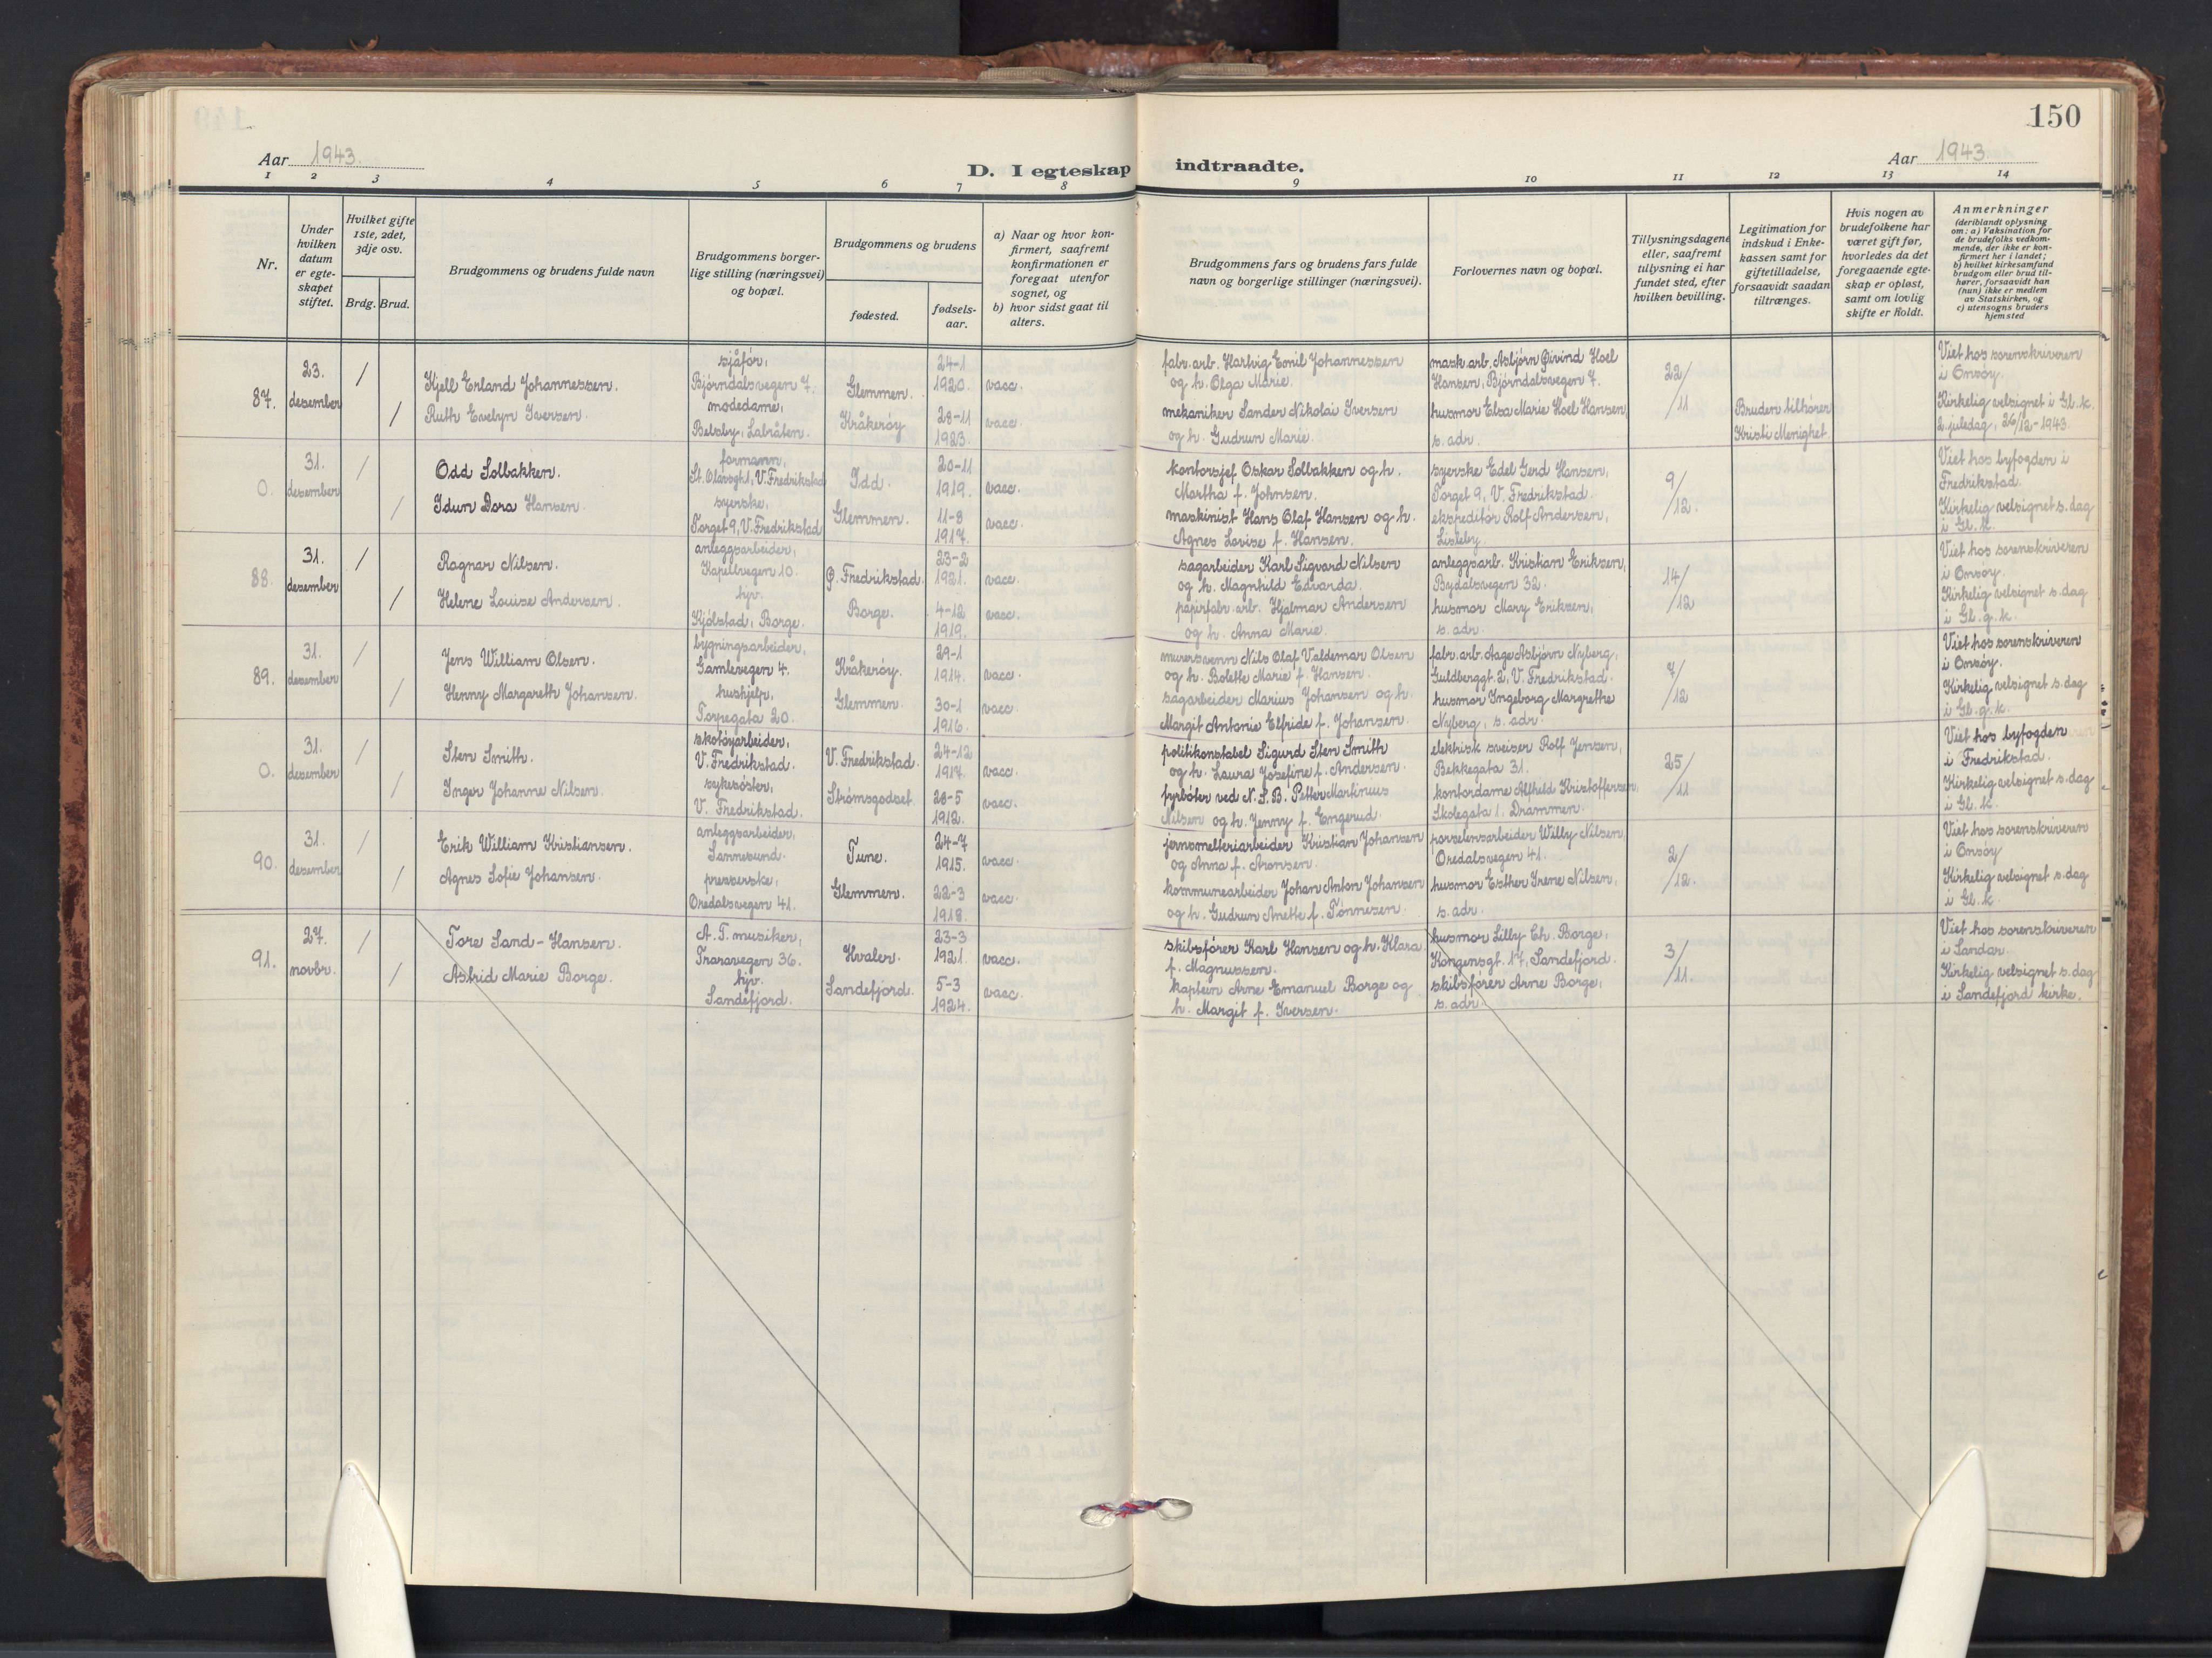 150
Aar 1943.
D. I egteskap indtraadte.
Aar 1943
1 2 3 4 5 6 7 8 9 10 11 12 13 14
Nr.
Under hvilken datum er egteskapet stiftet.
Hvilket gifte 1ste, 2det, 3dje osv.
Brdg. Brud.
Brudgommens og brudens fulde navn
Brudgommens borger-
lige stilling (næringsvei)
og bopæl.
Brudgommens og brudens
fødested.
fødsels-
aar.
a) Naar og hvor kon-
firmert, saafremt
konfirmationen er
foregaat utenfor
sognet, og
b) hvor sidst gaat til
alters.
Brudgommens fars og brudens fars fulde
navn og borgerlige stillinger (næringsvei).
Forlovernes navn og bopæl.
Tillysningsdagene
eller, saafremt
tillysning ei har
fundet sted, efter
hvilken bevilling.
Legitimation for
indskud i Enke-
kassen samt for
giftetilladelse,
forsaavidt saadan
tiltrænges.
Hvis nogen av
brudefolkene har
været gift før,
hvorledes da det
foregaaende egte-
skap er opløst,
samt om lovlig
skifte er holdt.
Anmerkninger
(deriblandt oplysning
om: a) Vaksination for
de brudefolks vedkom-
mende, der ikke er kon-
firmert her i landet;
b) hvilket kirkesamfund
brudgom eller brud til-
hører, forsaavidt han
(hun) ikke er medlem
av Statskirken, og
c) utensogns bruders
hjemsted
87.
23.
desember
/
Kjell Erland Johannessen.
sjåfør,
Bjørndalsvegen 7.
Glemmen.
24-1
1920.
vacc.
fabr. arb. Hartvig Emil Johannessen
og h. Olga Marie.
mask. arb. Asbjørn Øivind Hoel
Hansen, Bjørndalsvegen 7.
22/11
Viet hos sorenskriveren
i Onsøy.
/
Ruth Evelyn Iversen.
modedame,
Belsby, Labråten.
Kråkerøy
28-11
1923.
vacc.
mekaniker Sander Nikolai Iversen
og h. Gudrun Marie.
husmor Elsa Marie Hoel Hansen,
s. adr.
Bruden tilhører
Kristi Menighet.
Kirkelig velsignet i Gl. k.
2. juledag, 26/12-1943.
0.
31.
desember
/
Odd Solbakken.
formann,
St. Olavsgt 1, V. Fredrikstad
Idd.
20-11
1919.
vacc.
kontorsjef Oskar Solbakken og h.
Martha f. Johnsen.
syerske Edel Gerd Hansen,
Torget 9, V. Fredrikstad.
9/12.
Viet hos byfogden i
Fredrikstad.
/
Idun Dora Hansen.
syerske,
Torget 9, V. Fredrikstad
Glemmen.
11-8
1917.
vacc.
maskinist Hans Olaf Hansen og h.
Agnes Lovise f. Hansen.
ekspeditør Rolf Andersen,
Lisleby.
Kirkelig velsignet s. dag
i Gl. k.
88.
31.
desember
/
Ragnar Nilsen.
anleggsarbeider,
Kapellvegen 10.
Ø. Fredrikstad.
23-2
1921.
vacc.
sagarbeider Karl Sigvard Nilsen
og h. Magnhild Edvarda.
anleggsarb. Kristian Eriksen,
Bydalsvegen 32.
14/12
Viet hos sorenskriveren
i Onsøy.
/
Helene Louise Andersen.
hjv.
Kjølstad, Borge.
Borge.
4-12
1919.
vacc.
papirfabr. arb. Hjalmar Andersen
og h. Anna Marie.
husmor Mary Eriksen,
s. adr.
Kirkelig velsignet s. dag
i Gl. g. k.
89.
31.
desember
/
Jens William Olsen.
bygningsarbeider,
Gamlevegen 4.
Kråkerøy.
29-1
1914.
vacc.
murersvenn Nils Olaf Valdemar Olsen
og h. Bolette Marie f. Hansen.
fabr. arb. Aage Asbjørn Nyberg,
Guldberggt. 2, V. Fredrikstad.
7/12
Viet hos sorenskriveren
i Onsøy.
/
Henny Margareth Johansen.
hushjelp,
Torpegata 20.
Glemmen.
30-1
1916.
vacc.
sagarbeider Marius Johansen og h.
Margit Antonie Elfride f. Johansen.
husmor Ingeborg Margrethe
Nyberg, s. adr.
Kirkelig velsignet s. dag
i Gl. g. k.
0.
31.
desember
/
Sten Smith.
skotøyarbeider,
V. Fredrikstad.
V. Fredrikstad.
24-12
1917.
vacc.
politikonstabel Sigurd Sten Smith
og h. Laura Josefine f. Andersen.
elektrisk sveiser Rolf Jensen,
Bekkegata 31.
25/11
Viet hos byfogden
i Fredrikstad.
/
Inger Johanne Nilsen.
sykesøster,
V. Fredrikstad.
Strømsgodset.
28-5
1912.
vacc.
fyrbøter ved N. S. B. Petter Martinius
Nilsen og h. Jenny f. Engerud.
kontordame Alfhild Kristoffersen,
Skolegata 1. Drammen.
Kirkelig velsignet s. dag
i Gl. k.
90.
31.
desember
/
Erik William Kristiansen.
anleggsarbeider,
Sannesund.
Tune.
24-7
1915.
vacc.
jernsmelteriarbeider Kristian Johansen
og Anna f. Aronsen.
porselensarbeider Willy Nilsen,
Oredalsvegen 41.
2/12.
Viet hos sorenskriveren
i Onsøy
/
Agnes Sofie Johansen.
presserske,
Oredalsvegen 41.
Glemmen.
22-3
1918.
vacc.
kommunearbeider Johan Anton Johansen
og h. Gudrun Anette f. Tønnesen.
husmor Esther Irene Nilsen,
s. adr.
Kirkelig velsignet s. dag
i Gl. k.
91.
27.
novbr.
/
Tore Sand-Hansen.
A. T. musiker,
Traravegen 36.
Hvaler.
23-3
1921.
vacc.
skibsfører Karl Hansen og h. Klara
f. Magnussen.
husmor Lilly Ch. Borge,
Kongensgt. 17, Sandefjord.
3/11.
Viet hos sorenskriveren
i Sandar.
/
Astrid Marie Borge.
hjv.
Sandefjord.
Sandefjord.
5-3
1924.
vacc.
kaptein Arne Emanuel Borge og
h. Margit f. Iversen.
skibsfører Arne Borge,
s. adr.
Kirkelig velsignet s. dag
i Sandefjord kirke.